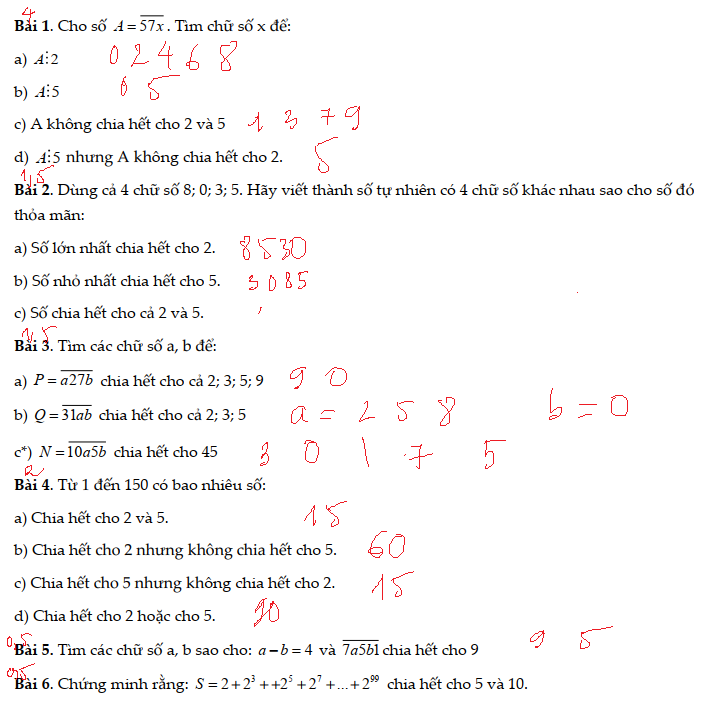 4
Bài 1. Cho số A = 57x. Tìm chữ số x để:
a) A⋮2 0 2 4 6 8
b) A⋮5 0 5
c) A không chia hết cho 2 và 5 1 3 7 9
d) A⋮5 nhưng A không chia hết cho 2. 5
1,5
Bài 2. Dùng cả 4 chữ số 8; 0; 3; 5. Hãy viết thành số tự nhiên có 4 chữ số khác nhau sao cho số đó
thỏa mãn:
a) Số lớn nhất chia hết cho 2. 8530
b) Số nhỏ nhất chia hết cho 5. 3085
c) Số chia hết cho cả 2 và 5.
1,5
Bài 3. Tìm các chữ số a, b để:
a) P = a27b chia hết cho cả 2; 3; 5; 9 9 0
b) Q = 31ab chia hết cho cả 2; 3; 5 a = 2 5 8 b = 0
c*) N = 10a5b chia hết cho 45 3 0 1 7 5
2
Bài 4. Từ 1 đến 150 có bao nhiêu số:
a) Chia hết cho 2 và 5. 15
b) Chia hết cho 2 nhưng không chia hết cho 5. 60
c) Chia hết cho 5 nhưng không chia hết cho 2. 15
d) Chia hết cho 2 hoặc cho 5. 90
0,5
Bài 5. Tìm các chữ số a, b sao cho: a − b = 4 và 7a5b1 chia hết cho 9 9 5
0,5
Bài 6. Chứng minh rằng: S = 2 + 2³ + +2⁵ + 2⁷ + ... + 2⁹⁹ chia hết cho 5 và 10.